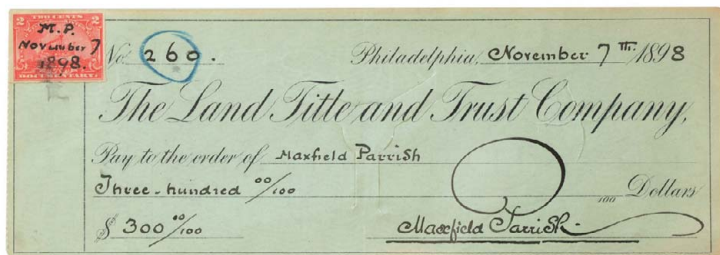 TWO CENTS
2 2
M.P.
November 7
1898.
DOCUMENTARY
No. 260.
Philadelphia, November 7TH. 1898
The Land Title and Trust Company,
Pay to the order of Maxfield Parrish
Three-hundred 00/100 100 Dollars
$ 300 00/100
Maxfield Parrish